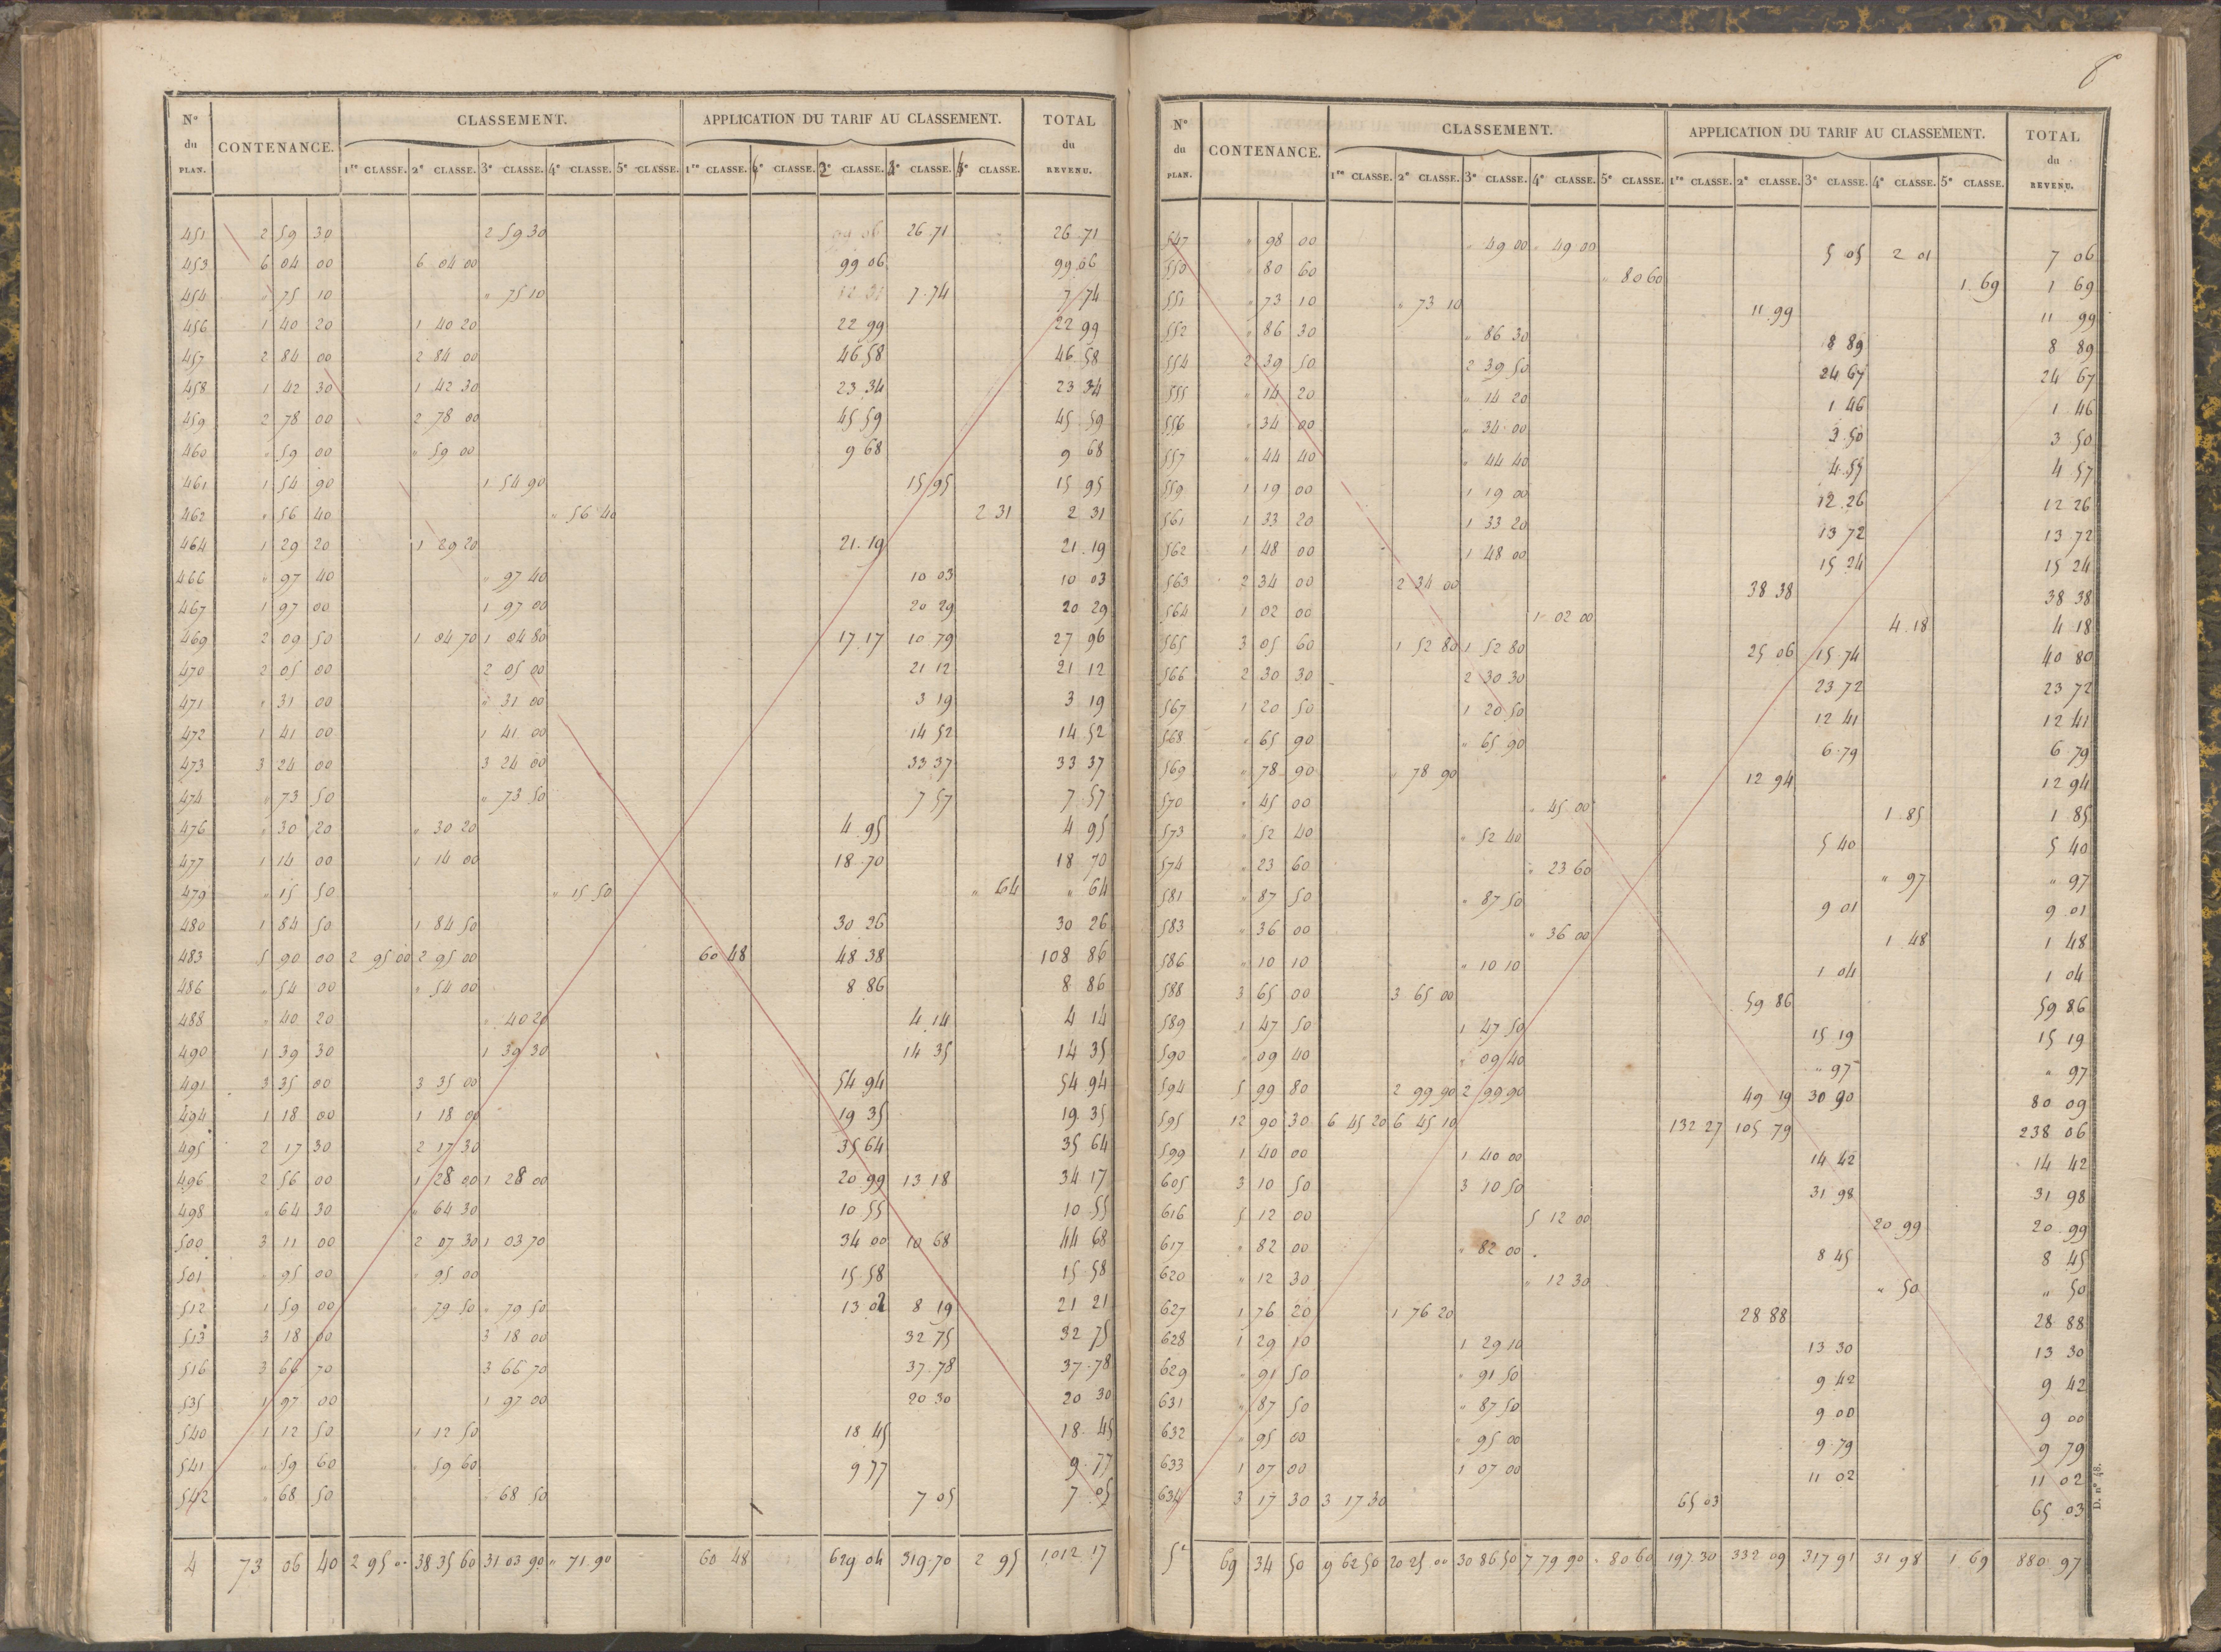 8
N° du PLAN. CONTENANCE. CLASSEMENT. APPLICATION DU TARIF AU CLASSEMENT. TOTAL du REVENU.
1re CLASSE. 2e CLASSE. 3e CLASSE. 4e CLASSE. 5e CLASSE. 1re CLASSE. CLASSE. 2 CLASSE. CLASSE. CLASSE.
451 2 59 30 2 59 30 26.71 26.71
453 6 04 00 6 04 00 99 06 99 06
454 " 75 10 " 75 10 7.74 7.74
456 1 40 20 1 40 20 22 99 22 99
457 2 84 00 2 84 00 46.58 46.58
458 1 42 30 1 42 30 23.34 23 34
459 2 78 00 2 78 00 45 59 45 59
460 " 59 00 " 59 00 9 68 9 68
461 1 54 90 1 54 90 15 95 15 95
462 " 56 40 " 56 40 2 31 2 31
464 1 29 20 1 29 20 21.19 21.19
466 " 97 40 " 97 40 10 03 10 03
467 1 97 00 1 97 00 20 29 20 29
469 2 09 50 1 04 70 1 04 80 17.17 10 79 27 96
470 2 05 00 2 05 00 21 12 21 12
471 " 31 00 " 31 00 3 19 3 19
472 1 41 00 1 41 00 14 52 14.52
473 3 24 00 3 24 00 33 37 33 37
474 " 73 50 " 73 50 7 57 7.57
476 " 30 20 " 30 20 4.95 4 95
477 1 14 00 1 14 00 18.70 18 70
479 " 15 50 " 15 50 " 64 " 64
480 1 84 50 1 84 50 30 26 30 26
483 5 90 00 2 95 00 2 95 00 60 48 48 38 108 86
486 " 54 00 " 54 00 8 86 8 86
488 " 40 20 " 40 20 4.14 4 14
490 1 39 30 1 39 30 14 35 14 35
491 3 35 00 3 35 00 54 94 54 94
494 1 18 00 1 18 00 19 35 19.35
495 2 17 30 2 17 30 35 64 35 64
496 2 56 00 1 28 00 1 28 00 20.99 13 18 34 17
498 " 64 30 " 64 30 10 55 10 55
500 3 11 00 2 07 30 1 03 70 34 00 10 68 44 68
501 " 95 00 " 95 00 15.58 15 58
512 1 59 00 " 79 50 " 79 50 13 02 8 19 21 21
513 3 18 00 3 18 00 32 75 32 75
516 3 66 70 3 66 70 37.78 37.78
535 1 97 00 1 97 00 20 30 20 30
540 1 12 50 1 12 50 18 45 18.45
541 " 59 60 " 59 60 9 77 9.77
542 " 68 50 " 68 50 7 05 7 05
4 73 06 40 2 95 00 38 35 60 31 03 90 " 71.90 60 48 629 04 319.70 2 95 1,012.17
N° du PLAN. CONTENANCE. CLASSEMENT. APPLICATION DU TARIF AU CLASSEMENT. TOTAL du REVENU.
1re CLASSE. 2e CLASSE. 3e CLASSE. 4e CLASSE. 5e CLASSE. 1re CLASSE. 2e CLASSE. 3e CLASSE. 4e CLASSE. 5e CLASSE.
547 " 98 00 " 49 00 " 49 00 5 05 2 01 7 06
550 " 80 60 " 80 60 1.69 1 69
551 " 73 10 " 73 10 11.99 11 99
552 " 86 30 " 86 30 8 89 8 89
554 2 39 50 2 39 50 24 67 24 67
555 " 14 20 " 14 20 1 46 1 46
556 " 34 00 " 34.00 3.50 3 50
557 " 44 40 " 44 40 4.57 4 57
559 1 19 00 1 19 00 12.26 12 26
561 1 33 20 1 33 20 13 72 13.72
562 1 48 00 1 48 00 15 24 15 24
563 2 34 00 2 34 00 38 38 38 38
564 1 02 00 1 02 00 4.18 4 18
565 3 05 60 1 52 80 1 52 80 25 06 15.74 40 80
566 2 30 30 2 30 30 23 72 23 72
567 1 20 50 1 20 50 12 41 12 41
568 " 65 90 " 65 90 6.79 6.79
569 " 78 90 " 78 90 12 94 12 94
570 " 45 00 " 45 00 1 85 1 85
573 " 52 40 " 52 40 5 40 5 40
574 " 23 60 " 23 60 " 97 " 97
581 " 87 50 " 87 50 9 01 9 01
583 " 36 00 " 36 00 1 48 1 48
586 " 10 10 " 10 10 1 04 1 04
588 3 65 00 3 65 00 59 86 59 86
589 1 47 50 1 47 50 15 19 15 19
590 " 09 40 " 09 40 " 97 " 97
594 5 99 80 2 99 90 2 99 90 49 19 30 90 80 09
595 12 90 30 6 45 20 6 45 10 132 27 105 79 238 06
599 1 40 00 1 40 00 14 42 14 42
605 3 10 50 3 10 50 31 98 31 98
616 5 12 00 5 12 00 20.99 20.99
617 " 82 00 " 82 00 8 45 8 45
620 " 12 30 " 12 30 " 50 " 50
627 1 76 20 1 76 20 28 88 28 88
628 1 29 10 1 29 10 13 30 13 30
629 " 91 50 " 91 50 9 42 9 42
631 " 87 50 " 87 50 9 00 9 00
632 " 95 00 " 95 00 9.79 9 79
633 1 07 00 1 07 00 11 02 11 02
634 3 17 30 3 17 30 65 03 65 03
5e 69 34 50 9 62 50 20 25 00 30 86 50 7 79 90 " 80 60 197.30 332 09 317 91 31 98 1.69 880.97
D. n° 48.